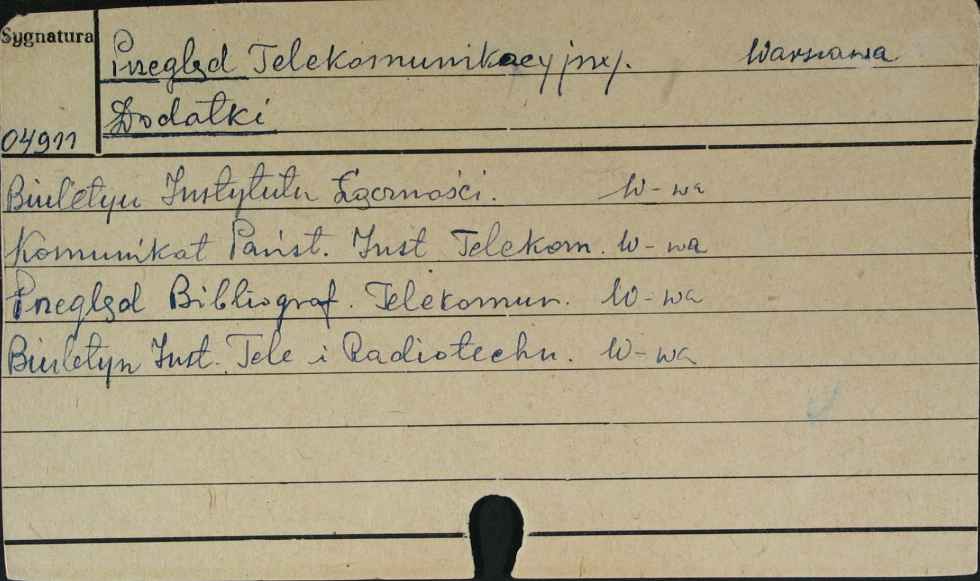 Sygnatura
Przegląd Telekomunikacyjny. Warszawa
Dodatki
04911
Biuletyn Instytutu Łączności. W-wa
Komunikat Państ. Inst Telekom. W-wa
Przegląd Bibliograf. Telekomun. W-wa
Biuletyn Inst. Tele i Radiotechn. W-wa